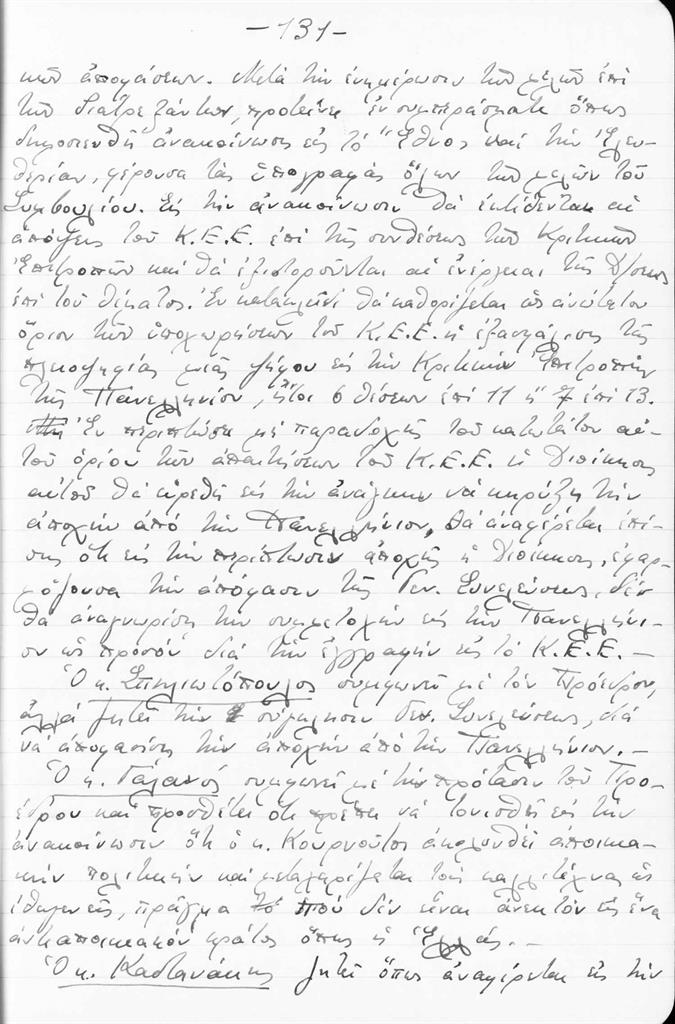 -131-
κῶν ἀποφάσεων. Μετὰ τὴν ἐνημέρωσιν τῶν μελῶν ἐπὶ
τῶν διατρεξάντων, προτείνει ἐν συμπεράσματι ὅπως
δημοσιευθῇ ἀνακοίνωσις εἰς τὸ Ἔθνος καὶ τὴν Ἐλευ-
θερίαν, φέρουσα τὰς ὑπογραφὰς ὅλων τῶν μελῶν τοῦ
Συμβουλίου. Εἰς τὴν ἀνακοίνωσιν θὰ ἐκτίθενται αἱ
ἀπόψεις τοῦ Κ.Ε.Ε. ἐπὶ τῆς συνθέσεως τῶν Κριτικῶν
Ἐπιτροπῶν καὶ θὰ ἐξιστοροῦνται αἱ ἐνέργειαι τῆς Δ/σεως
ἐπὶ τοῦ θέματος. Ἐν κατακλεῖδι θὰ καθορίζεται ὡς ἀνώτατον
ὅριον τῶν ὑποχωρήσεων τοῦ Κ.Ε.Ε. ἡ ἐξασφάλισις τῆς
πλειοψηφίας μιᾶς ψήφου εἰς τὴν Κριτικὴν Ἐπιτροπὴν
τῆς Πανελληνίου, ἤτοι 6 θέσεων ἐπὶ 11 ἢ 7 ἐπὶ 13.
Ἐν περιπτώσει μὴ παραδοχῆς τοῦ κατωτάτου αὐ-
τοῦ ὁρίου τῶν ἀπαιτήσεων τοῦ Κ.Ε.Ε. ἡ Διοίκησις
αὐτοῦ θὰ εὑρεθῇ εἰς τὴν ἀνάγκην νὰ κηρύξῃ τὴν
ἀποχὴν ἀπὸ τὴν Πανελλήνιον, θὰ ἀναφέρεται ἐπί-
σης ὅτι εἰς τὴν περίπτωσιν ἀποχῆς ἡ Διοίκησις, ἐφαρ-
μόζουσα τὴν ἀπόφασιν τῆς Γεν. Συνελεύσεως, δὲν
θὰ ἀναγνωρίσῃ τὴν συμμετοχὴν εἰς τὴν Πανελλήνι-
ον ὡς προσὸν διὰ τὴν ἐγγραφὴν εἰς τὸ Κ.Ε.Ε. –
Ὁ κ. Σπηλιωτόπουλος συμφωνεῖ μὲ τὸν Πρόεδρον,
ἀλλὰ ζητεῖ τὴν σύγκλησιν Γεν. Συνελεύσεως, διὰ
νὰ ἀποφασίσῃ τὴν ἀποχὴν ἀπὸ τὴν Πανελλήνιον. –
Ὁ κ. Γαλανὸς συμφωνεῖ μὲ τὴν πρότασιν τοῦ Προ-
έδρου καὶ προσθέτει ὅτι πρέπει νὰ τονισθῇ εἰς τὴν
ἀνακοίνωσιν ὅτι ὁ κ. Κουρνοῦτος ἀκολουθεῖ ἀποικια-
κὴν πολιτικὴν καὶ μεταχειρίζεται τοὺς καλλιτέχνας ὡς
ἰθαγενεῖς, πρᾶγμα ποὺ δὲν εἶναι ἀνεκτὸν εἰς ἕνα
ἀντιαποικιακὸν κράτος ὅπως ἡ Ἑλλάς. –
Ὁ κ. Καστανάκης ζητεῖ ὅπως ἀναφέρεται εἰς τὴν